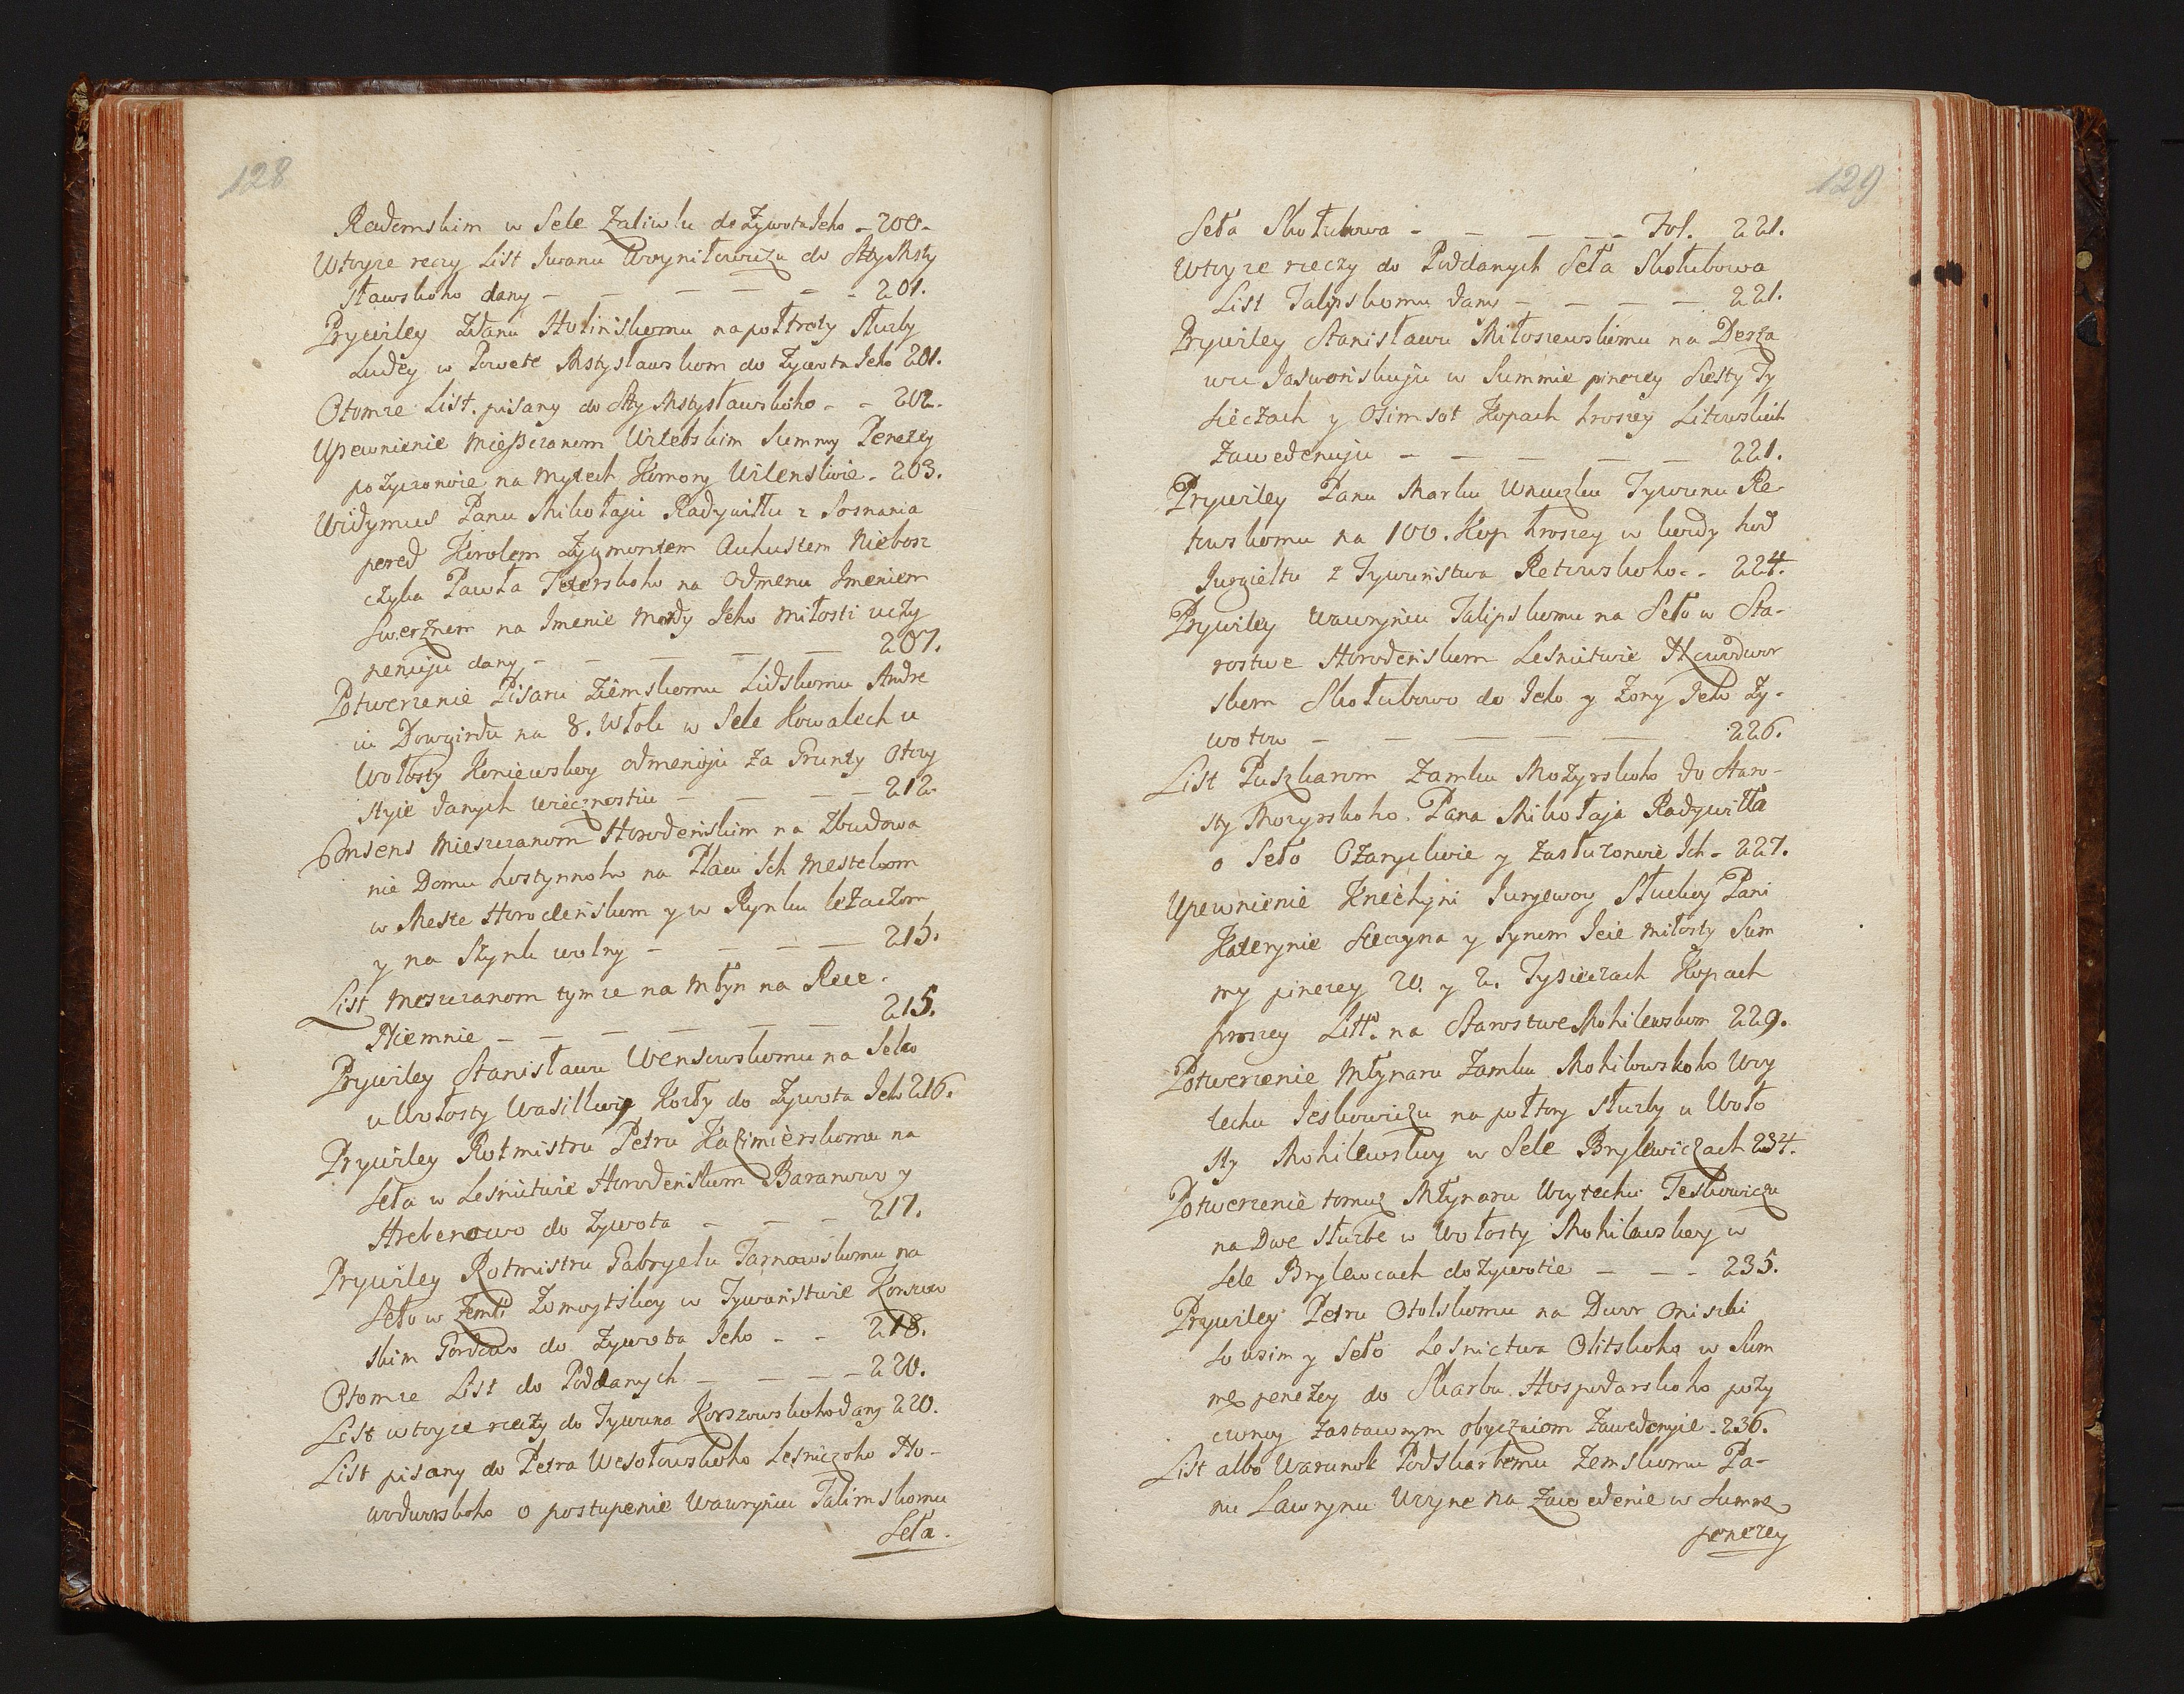 128
Radomskim w Sele Zaliwlu do Żywota Jeho - 200.
Wtoyze reczy List Iwanu Woyniłowiczu do Sty Msty
sławskoho dany - - - - - 201.
Prywiley Zdanu Holinskomu na połtrety służby
Ludey w Powete Mstysławskom do Żywota Jeho 201.
Otomze List pisany do Sty Mstysławskoho - - 202.
Upewnienie Mieszczanom Witebskim Summy Penezey
pożyczonoie na Mytech Komory Wilenskoie - 203.
Widymus Panu Mikołaju Radywiłłu z Soznania
pered Korolem Zygmontem Auhustem Niebosz
czyka Pawła Teterskoho na Odmenu Imeniem
Swerżnem na Imenie Mordy Jeho Miłosti uczy
nenuju dany - - - - 207.
Potwerzenie Pisaru Ziemskomu Lidskomu Andre
iu Dowgirdu na 8. Włok w Sele Kowalech u
Wołosty Koniewskoy odmenoju za Grunty Otczy
styie danych wiecznostiu - - - - 212.
Consens Mieszczanom Horodeńskim na Zbudowa
nie Domu hostynnoho na Placu Ich Mestckom
w Meste Horodeńskom y w Rynku leżaczom
y na Szynk wolny - - - - 215.
List Meszczanom tymze na Młyn na Rece
Niemnie - - - - - - 215.
Prywiley Stanisławu Wensowskomu na Selco
u Wołosty Wasilkowie Kozły do Żywota Jeho 216.
Prywiley Rotmistru Petru Kazimierskomu na
Seła w Lesnictwie Horodenskom Baranowo y
Hrebenowo do Żywota - - - 217.
Prywiley Rotmistru Gabryelu Tarnowskomu na
Seło w Zemli Żomoytskoy w Tywuństwie Korszow
skim Gordowo do Żywota Jeho - - 218.
Otomze List do Poddanych - - - - 220.
List wtoyze reczy do Tywuna Korszowskoho dany 220.
List pisany do Petra Wesołowskoho Lesniczoho No-
wodworskoho o postupenie Wawryńcu Talimskomu
Seła.
129
Seła Skołubowa - - - - - Fol. 221.
Wtoyze rieczy do Poddanych Seła Skołubowa
List Talipskomu dany - - - - 221.
Prywiley Stanisławu Miłoszewskomu na Derża
wu Jaswońskuju w Summie pinezey Szesty Ty
sieczach y Osimsot Kopach hroszey Litowskich
Zawedenuju - - - - - 221.
Prywiley Panu Marku Wnuczku Tywunu Re
towskomu na 100. Kop hroszey w kożdy hod
Jurgieltu z Tywuństwa Retowskoho - - 224.
Prywiley Wawryńcu Talipskomu na Seło w Sta-
rostwe Horodeńskom Lesnictwie Nowodwor
skom Skołubowo do Jeho y Żony Jeho Ży-
wotow - - - - - - 226.
List Puszkarom Zamku Mozyrskoho do Staro-
sty Mozyrskoho Pana Mikołaja Radywiłła
o Seło Ożarycliwie y Zasłużonoie Ich - 227.
Upewnienie Kniehyni Juryewoy Słuckoy Pani
Katerynie Tęczyna y Synom Jeie Miłosty Sum
my pinezey 20. y 2. Tysieczach Kopach
hroszey Litt. na Starostwe Mohilewskom 229.
Potwerzenie Młynaru Zamku Mohilowskoho Woy
techu Jeskowiczu na połtory służby u Woło
sty Mohilewskoy w Sele Brylewiczach 234.
Potwerzenie tomuż Młynaru Woytechu Teskowiczu
na Dwe służbe w Wołosty Mohilewskoy w
Sele Brylewcach dożywotie - - - 235.
Prywiley Petru Otolskomu na Dwor Oniszki
so wsim y Seło Lesnictwa Olitskoho w Sum
me penezey do Skarbu Hospodarskoho poży
czonoy Zastawnym obyczaiom Zawedenyie - 236.
List albo Warunok Podskarbemu Zemskomu Pa-
nu Lawrynu Woyne na Zawedenie w Summe
penezey